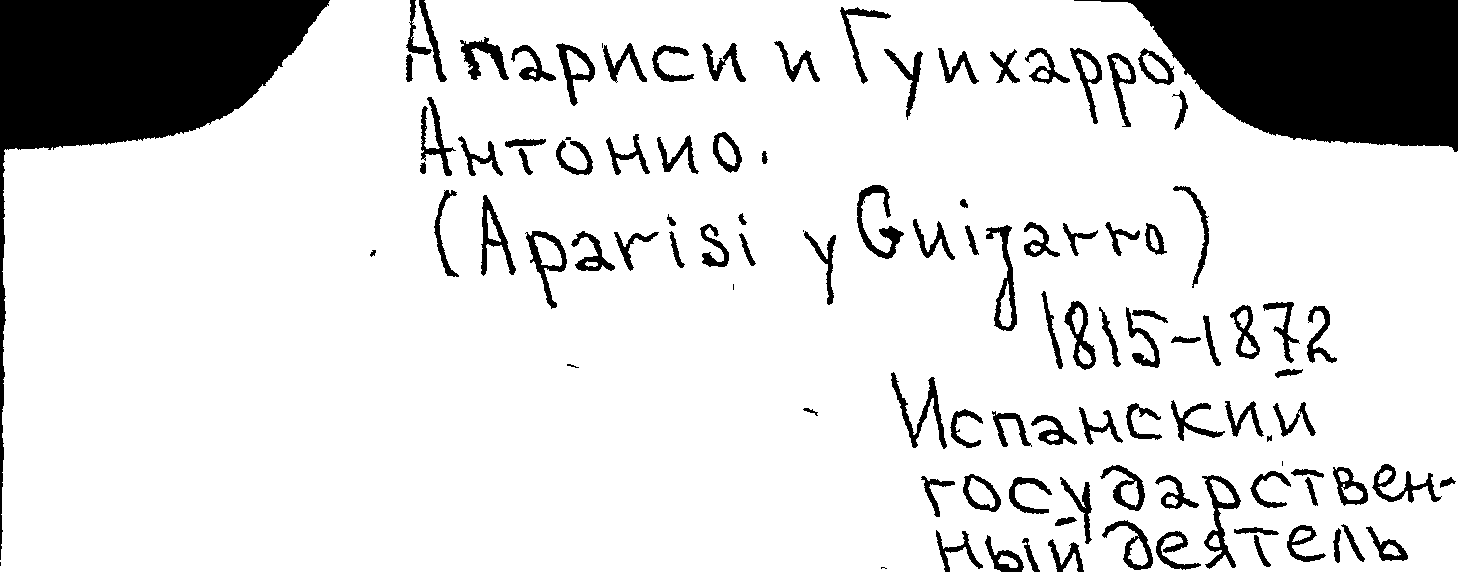 Апариси и Гуихарро,
Антонио.
(Aparisi y Guijarro)
1815-1872
Испанский
государствен-
ный деятель